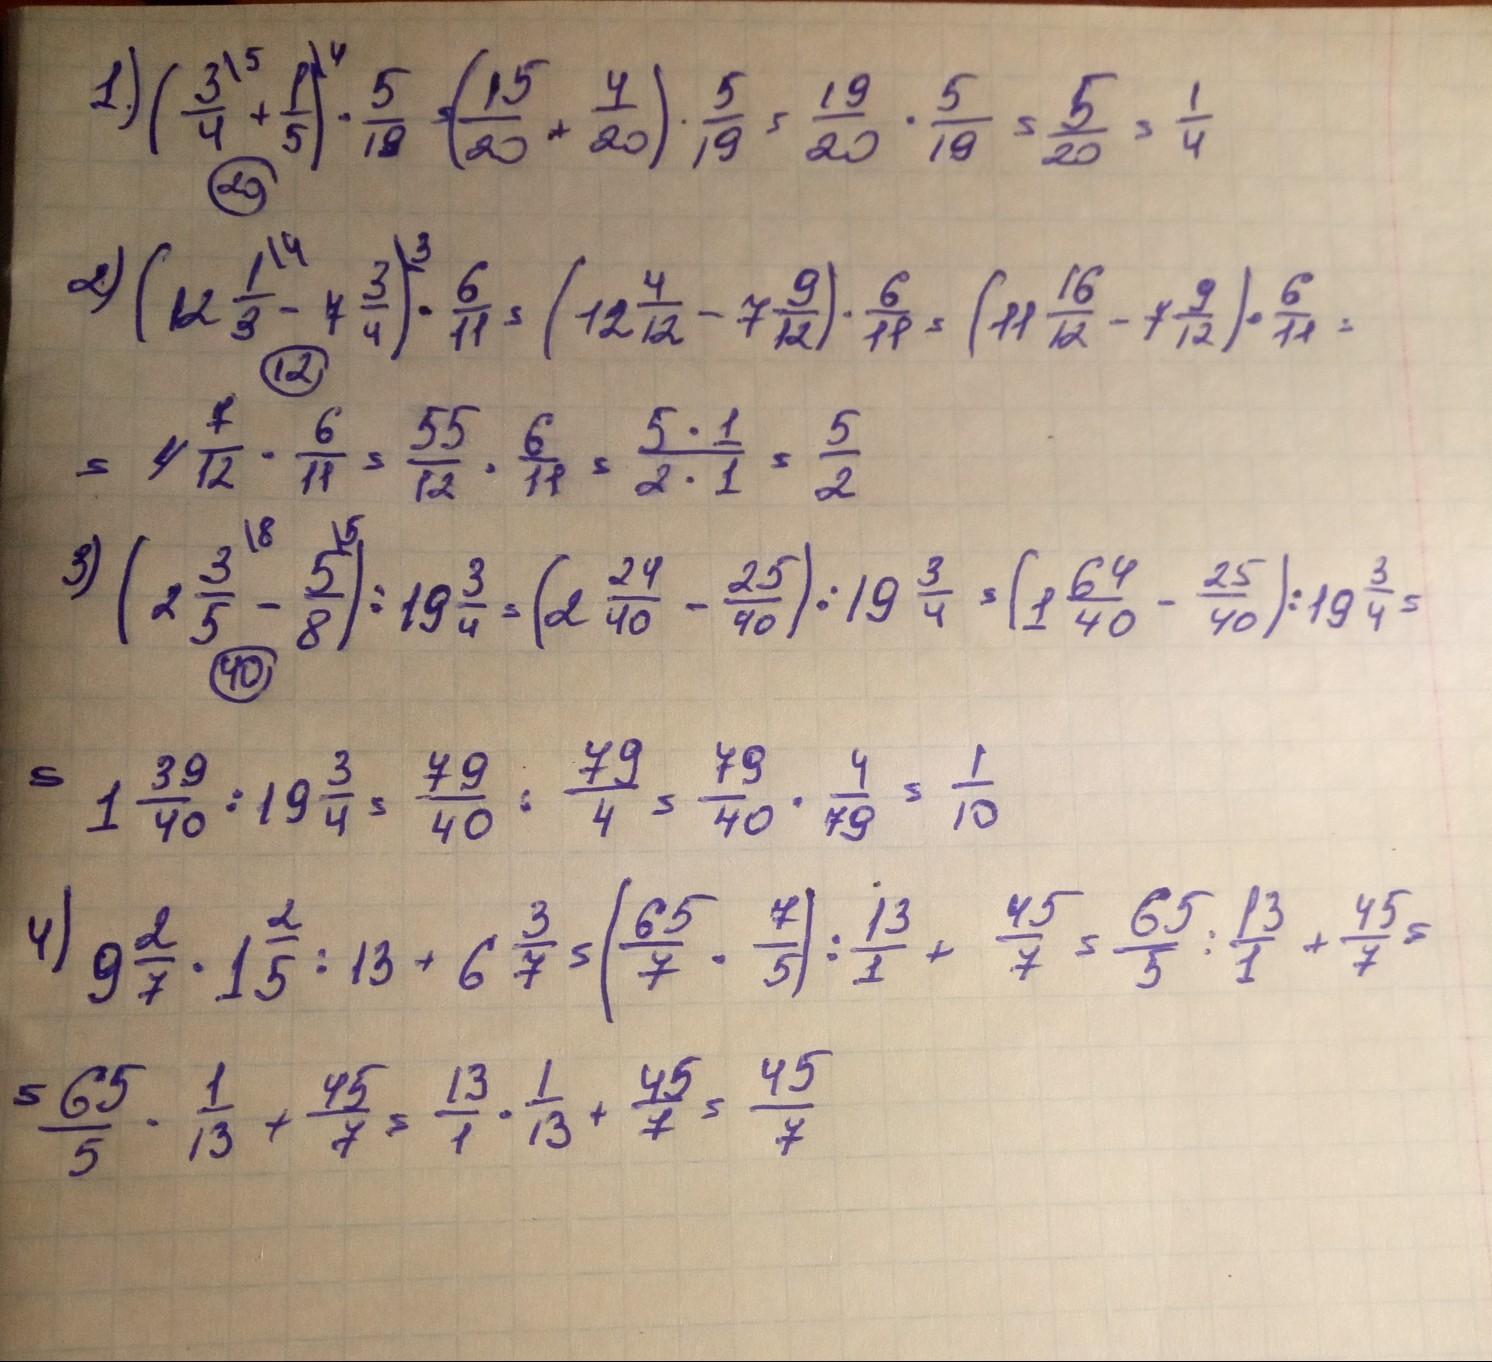 1) (3/4\5 + 1/5\4) · 5/19 = (15/20 + 4/20) · 5/19 = 19/20 · 5/19 = 5/20 = 1/4
20
2) (12 1/3\4 - 7 3/4\3) · 6/11 = (12 4/12 - 7 9/12) · 6/11 = (11 16/12 - 7 9/12) · 6/11 =
12
= 4 7/12 · 6/11 = 55/12 · 6/11 = 5·1/2·1 = 5/2
3) (2 3/5\8 - 5/8\5) : 19 3/4 = (2 24/40 - 25/40) : 19 3/4 = (1 64/40 - 25/40) : 19 3/4 =
40
= 1 39/40 : 19 3/4 = 79/40 : 79/4 = 79/40 · 4/79 = 1/10
4) 9 2/7 · 1 2/5 : 13 + 6 3/7 = (65/7 · 7/5) : 13/1 + 45/7 = 65/5 : 13/1 + 45/7 =
= 65/5 · 1/13 + 45/7 = 13/1 · 1/13 + 45/7 = 45/7